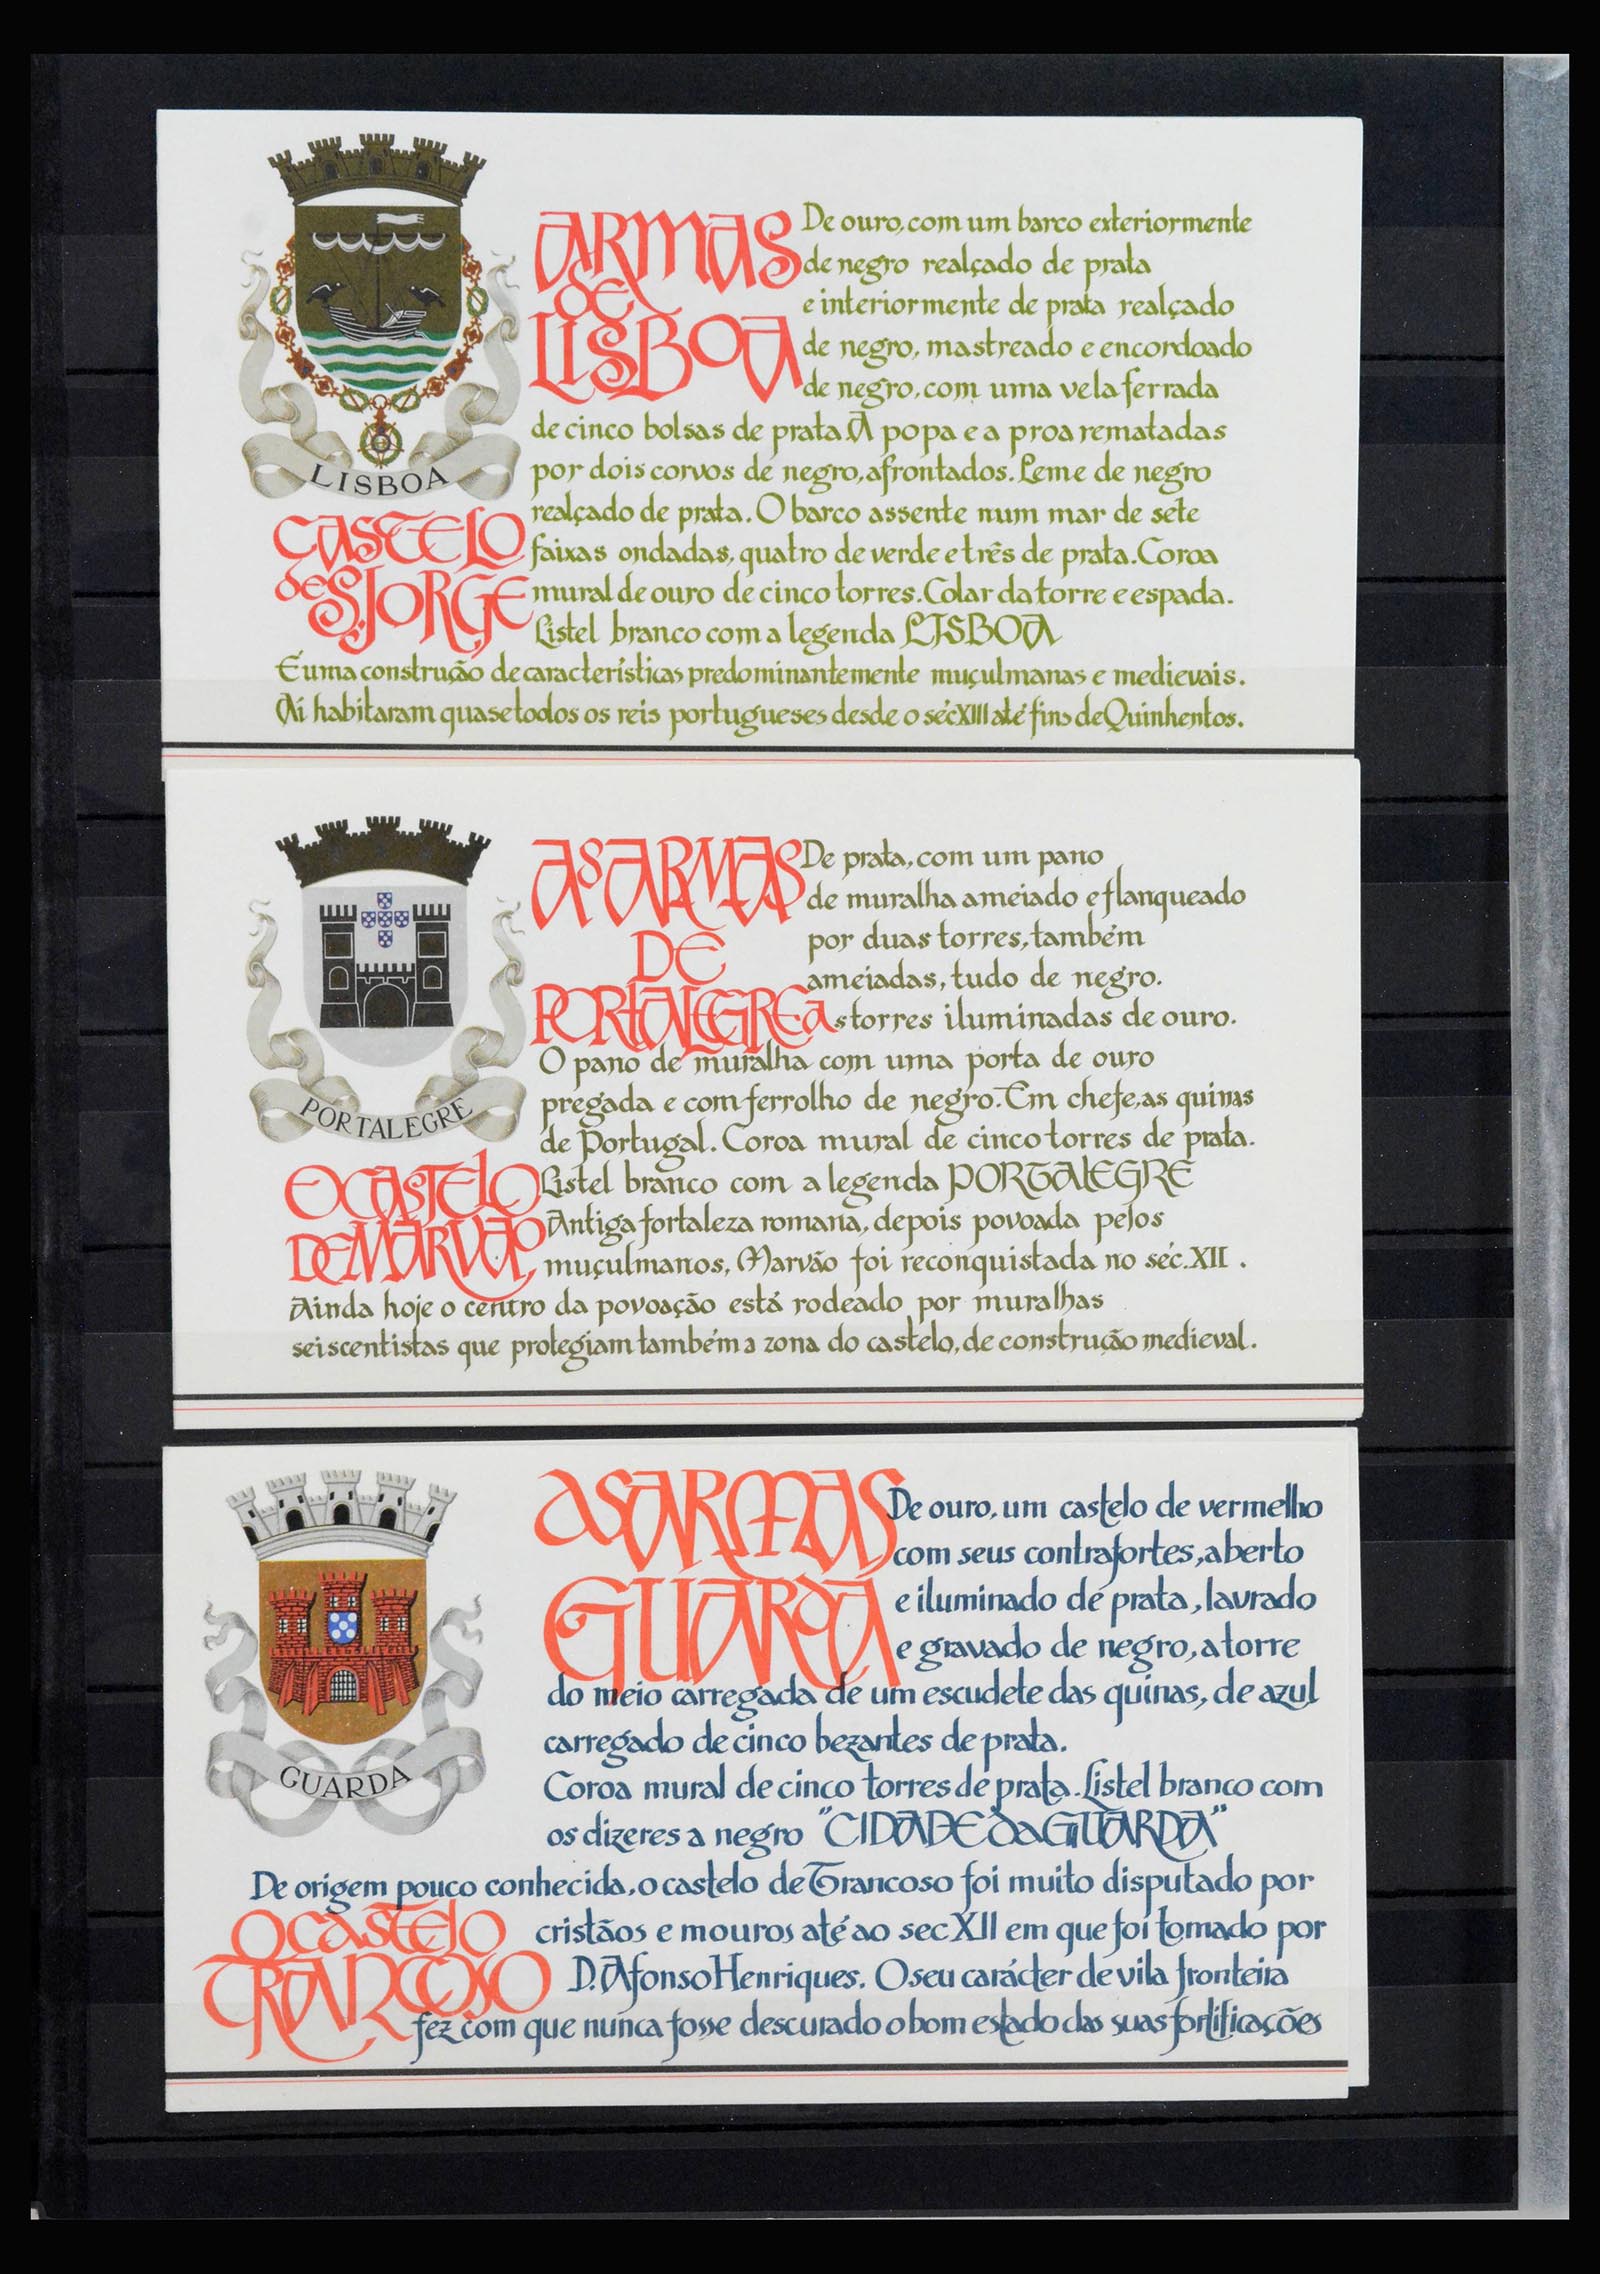 ARMAS
DE
LISBOA
De ouro, com um barco exteriormente
de negro realçado de prata
e interiormente de prata realçado
de negro, mastreado e encordoado
de negro, com uma vela ferrada
de cinco bolsas de prata. A popa e a proa rematadas
por dois corvos de negro, afrontados. Leme de negro
realçado de prata. O barco assente num mar de sete
faixas ondadas, quatro de verde e três de prata. Coroa
mural de ouro de cinco torres. Colar da torre e espada.
Listel branco com a legenda LISBOA
LISBOA
CASTELO
de S. JORGE
É uma construção de características predominantemente muçulmanas e medievais.
Aí habitaram quase todos os reis portugueses desde o séc XIII até fins de Quinhentos.
AS ARMAS
DE
PORTALEGRE
De prata, com um pano
de muralha ameiado e flanqueado
por duas torres, também
ameiadas, tudo de negro.
as torres iluminadas de ouro.
O pano de muralha com uma porta de ouro
pregada e com ferrolho de negro. Em chefe, as quinas
de Portugal. Coroa mural de cinco torres de prata.
Listel branco com a legenda PORTALEGRE
PORTALEGRE
O CASTELO
DE MARVAO,
Antiga fortaleza romana, depois povoada pelos
muçulmanos, Marvão foi reconquistada no séc. XII .
Ainda hoje o centro da povoação está rodeado por muralhas
seiscentistas que protegiam também a zona do castelo, de construção medieval.
AS ARMAS
GUARDA
De ouro, um castelo de vermelho
com seus contrafortes, aberto
e iluminado de prata, lavrado
e gravado de negro, a torre
do meio carregada de um escudete das quinas, de azul
carregado de cinco bezantes de prata.
Coroa mural de cinco torres de prata. Listel branco com
os dizeres a negro "CIDADE da GUARDA"
GUARDA
De origem pouco conhecida, o castelo de Trancoso foi muito disputado por
O CASTELO
TRANCOSO
cristãos e mouros até ao sec XII em que foi tomado por
D. Afonso Henriques. O seu carácter de vila fronteira
fez com que nunca fosse descurado o bom estado das suas fortificações